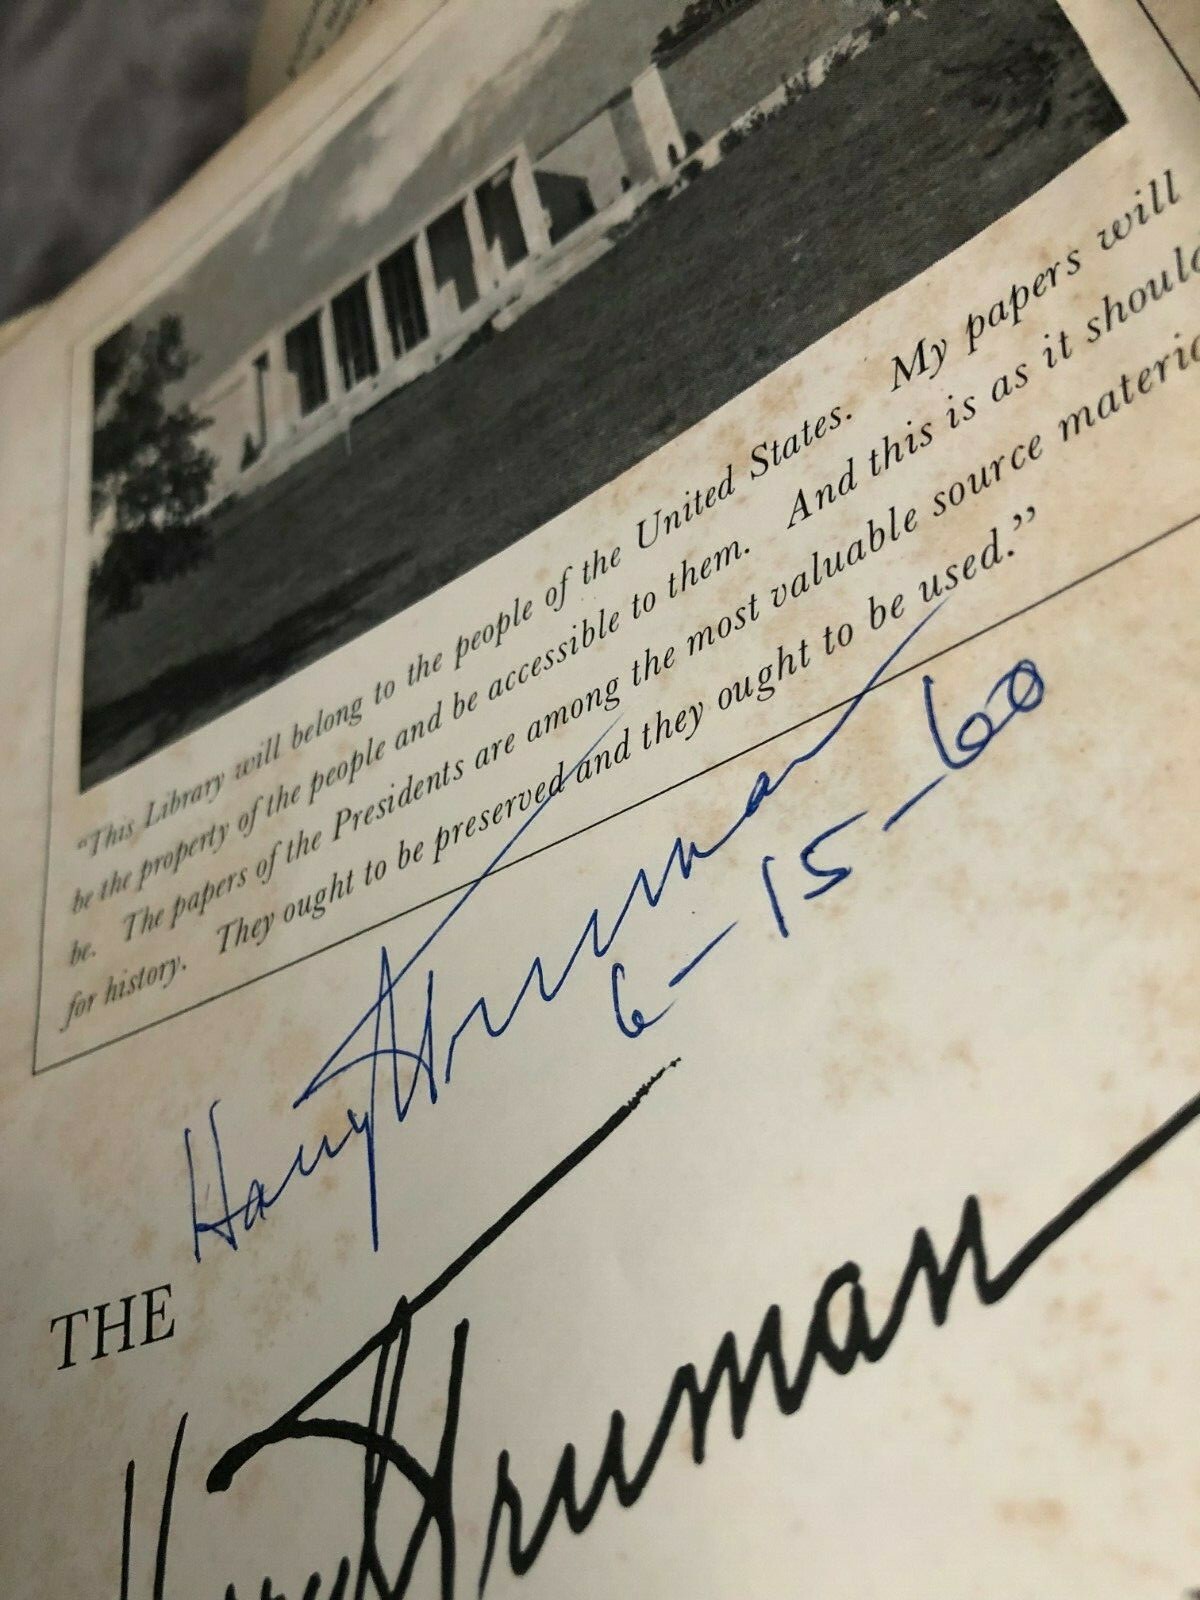 "This Library will belong to the people of the United States. My papers will
be the property of the people and be accessible to them. And this is as it should
be. The papers of the Presidents are among the most valuable source
for history. They ought to be preserved and they ought to be used."
Harry Truman
6-15-60
THE
Harry Truman